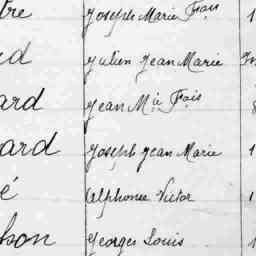 tre Joseph Marie Fçois 1
rd Julien Jean Marie
ard Jean Mie Fçois
ard Joseph Jean Marie 1
é Alphonse Victor 1
bon Georges Louis 1